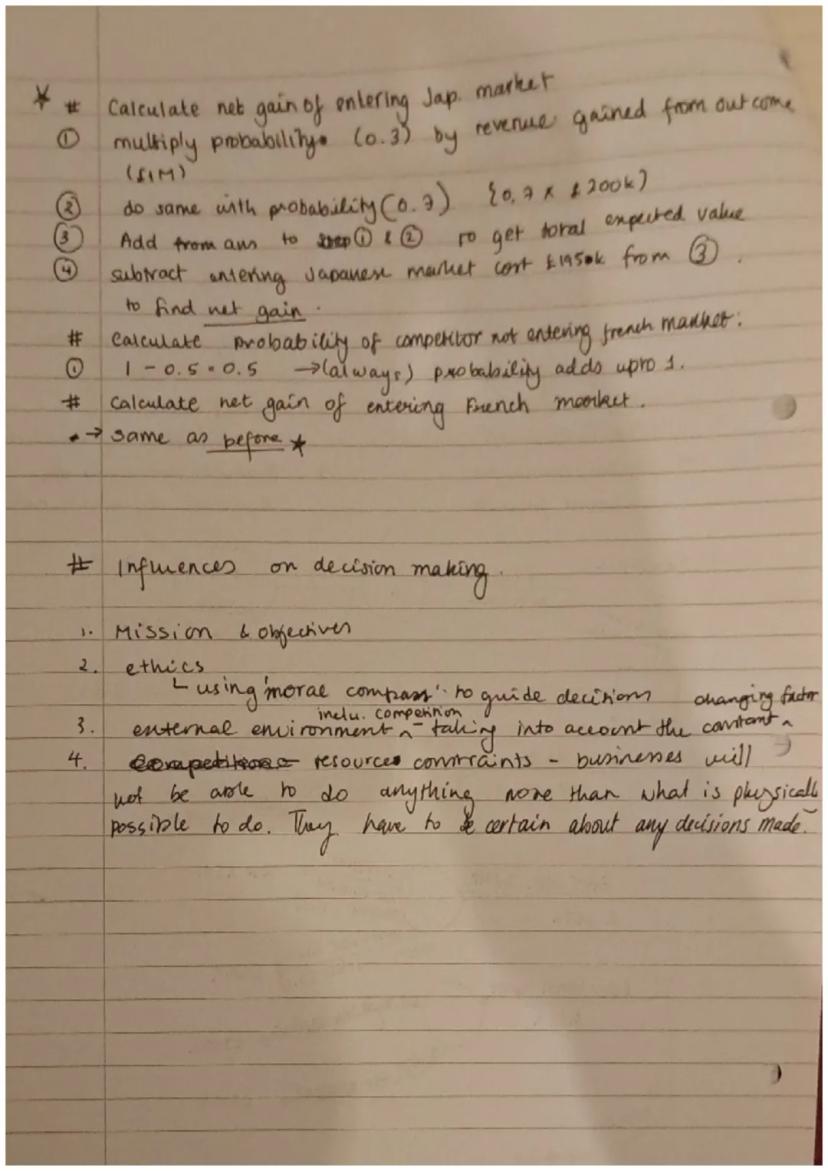 * # Calculate net gain of entering Jap. market
① multiply probability (0.3) by revenue gained from outcome
(£1M)
② do same with probability (0.7) {0.7 x £200k)
③ Add from ans to step ① & ② to get total expected value
④ subtract entering Japanese market cost £1950k from ③.
to find net gain.
# Calculate probability of competitor not entering french market:
① 1 - 0.5 = 0.5 → (always) probability adds upto 1.
# Calculate net gain of entering French market.
• → same as before *
# Influences on decision making.
1. Mission & objectives
2. ethics
└ using 'moral compass' to guide decisions
changing factor
inclu. competition
3. external environment ^ - taking into account the constant ^
4. resources constraints - businesses will
not be able to do anything more than what is physically
possible to do. They have to be certain about any decisions made.